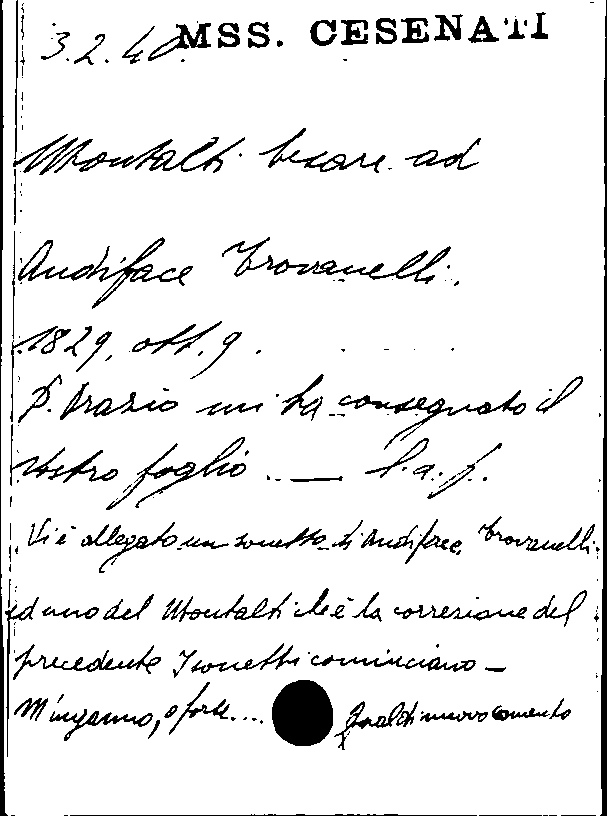 MSS. CESENATI
3.2.40.
Montalti Cesare ad
Audiface Trovanelli.
1829, ott. 9.
D. Orazio mi ha consegnato il
vostro foglio. — l. a. f.
Vi è allegato un sonetto di Audiface Trovanelli.
ed uno del Montalti che è la correzione del
precedente I sonetti cominciano —
M'inganno, o forse....
Qual di nuovo